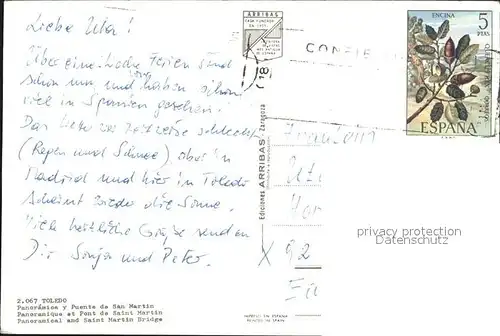 Liebe Uta!
Über eine Woche Ferien sind
schon um und wir haben schon
viel in Spanien gesehen.
Das Wetter war zeitweise schlecht
(Regen und Schnee), aber in
Madrid und hier in Toledo
scheint wieder die Sonne.
Viele herzliche Grüße senden
Dir Sonja und Peter.
2.067 TOLEDO
Panorámica y Puente de San Martin
Panoramique et Pont de Saint Martin
Panoramical and Saint Martin Bridge
ARRIBAS
CASA FUNDADA
Ediciones ARRIBAS - Zaragoza
IMPRESO EN ESPAÑA
PRINTED IN SPAIN
(18
ENCINA
5
PTAS
ESPAÑA
Fräulein
X 82
privacy protection
Datenschutz